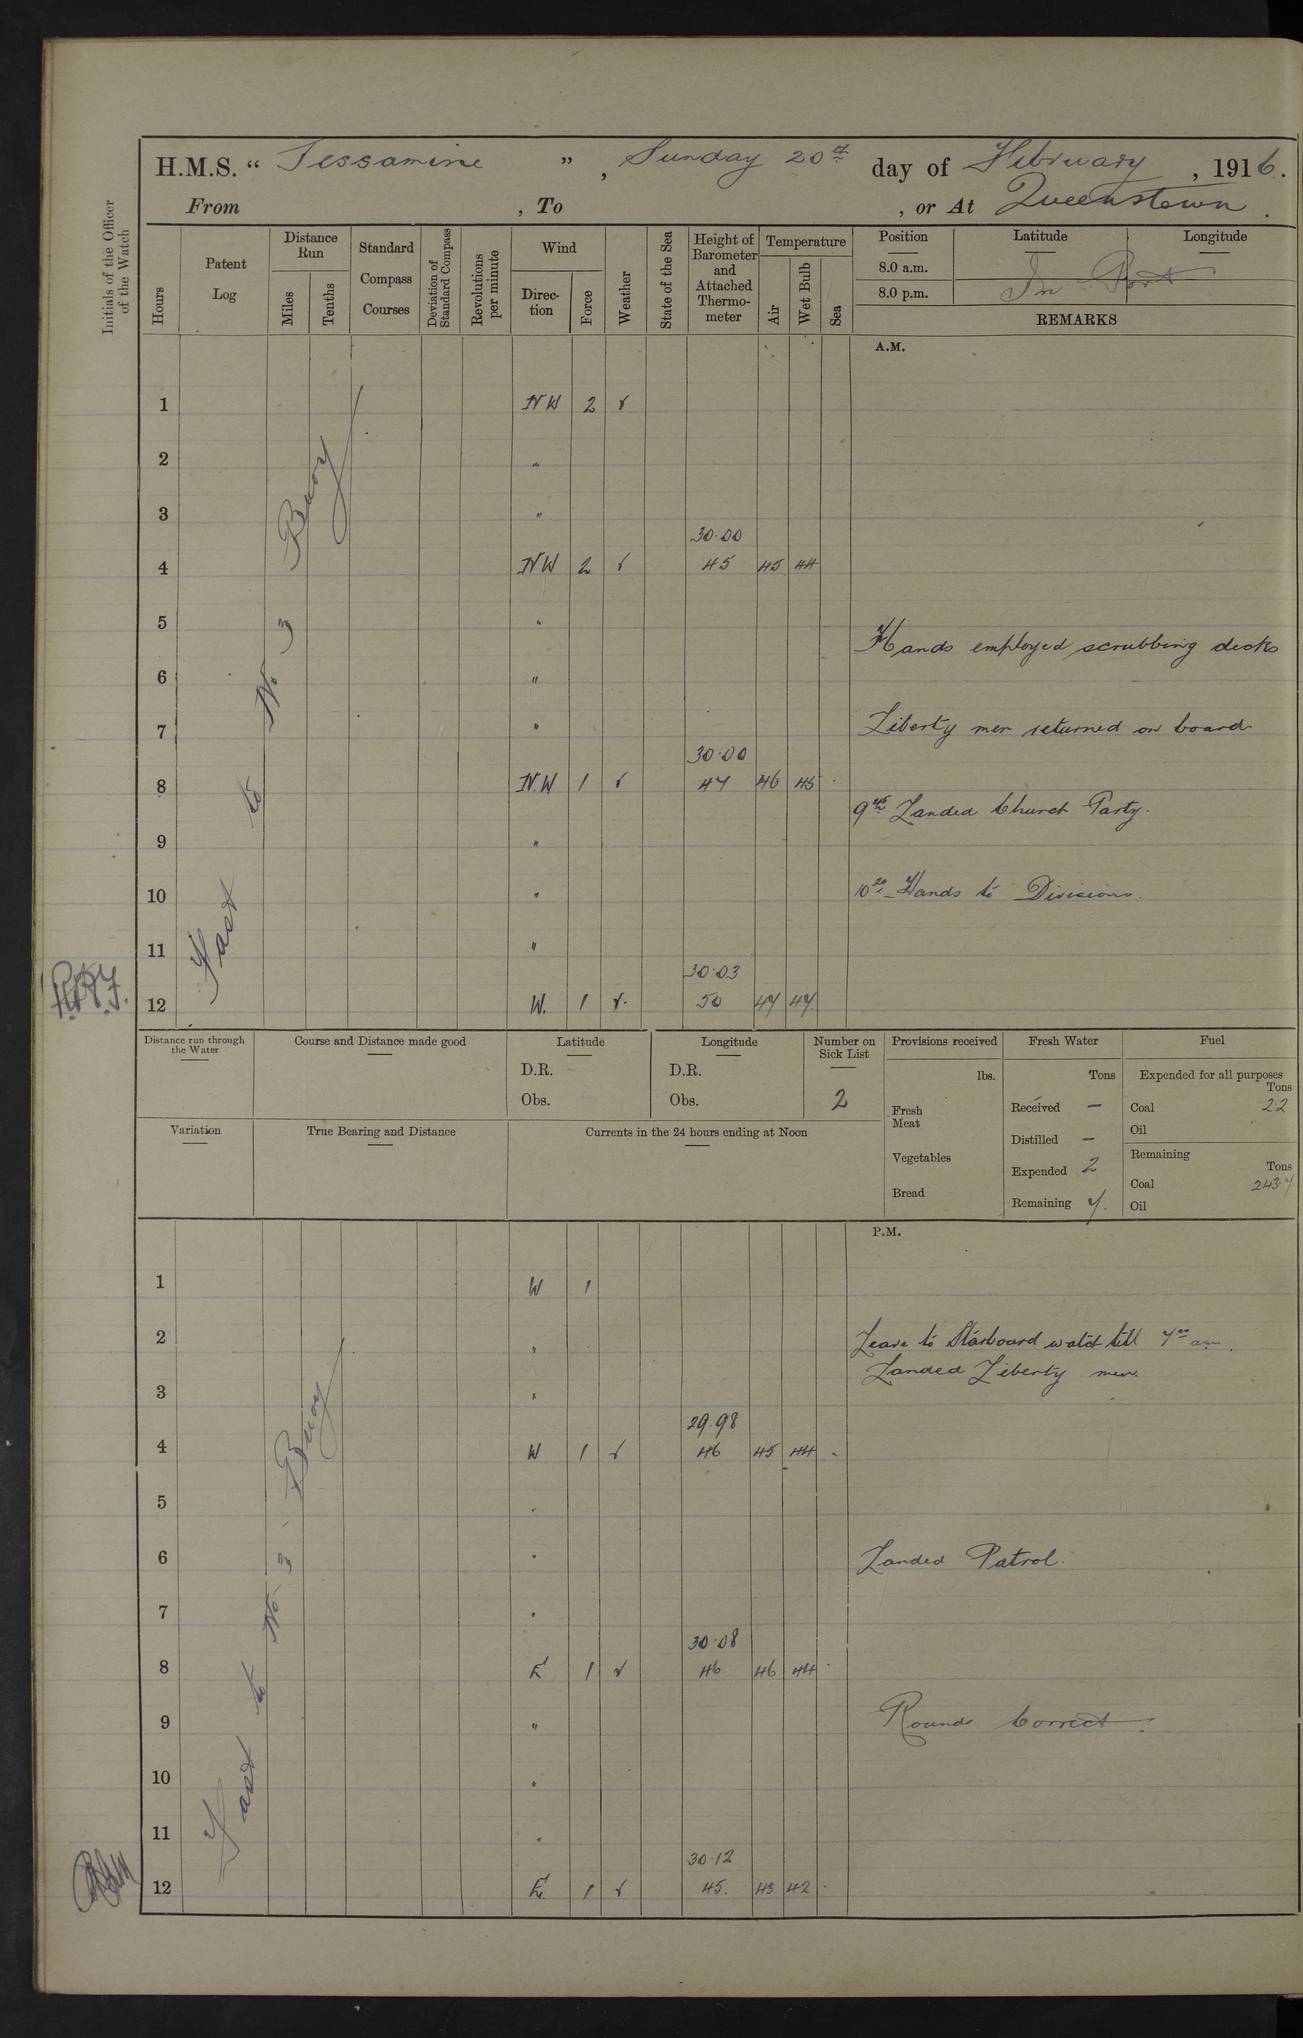 H.M.S. “ Jessamine ”, Sunday 20th day of February, 1916.
From , To , or At Queenstown.
Initials of the Officer of the Watch
Hours
Patent Log
Distance Run
Miles
Tenths
Standard Compass Courses
Deviation of Standard Compass
Revolutions per minute
Wind
Direction
Force
Weather
State of the Sea
Height of Barometer and Attached Thermometer
Temperature
Air
Wet Bulb
Sea
Position Latitude Longitude
8.0 a.m.
8.0 p.m.
In Port
REMARKS
A.M.
Fast to No 3 Buoy
1 NW 2 r
2 "
3 "
30.00
4 NW 2 r 45 45 44
5 "
Hands employed scrubbing decks
6 "
7 " Liberty men returned on board
30.00
8 N.W 1 r 47 46 45
9 45 Landed Church Party.
9 "
10 " 10 20 Hands to Divisions.
11 "
30.03
12 W. 1 r. 50 47 47
Distance run through the Water
Course and Distance made good
Latitude
D.R.
Obs.
Longitude
D.R.
Obs.
Number on Sick List
2
Provisions received
lbs.
Fresh Meat
Vegetables
Bread
Fresh Water
Tons
Received —
Distilled —
Expended 2
Remaining 7.
Fuel
Expended for all purposes
Tons
Coal 2.2
Oil
Remaining
Tons
Coal 243.7
Oil
Variation
True Bearing and Distance
Currents in the 24 hours ending at Noon
P.M.
Fast to No 3 Buoy
1 W 1
2 " Leave to Starboard watch till 7 00 am.
Landed Liberty men.
3 "
29.98
4 W 1 r 46 45 44
5 "
6 " Landed Patrol.
7 "
30.08
8 E 1 r 46 46 44
9 " Rounds Correct.
10 "
11 "
30.12
12 E. 1 r 45. 43 42